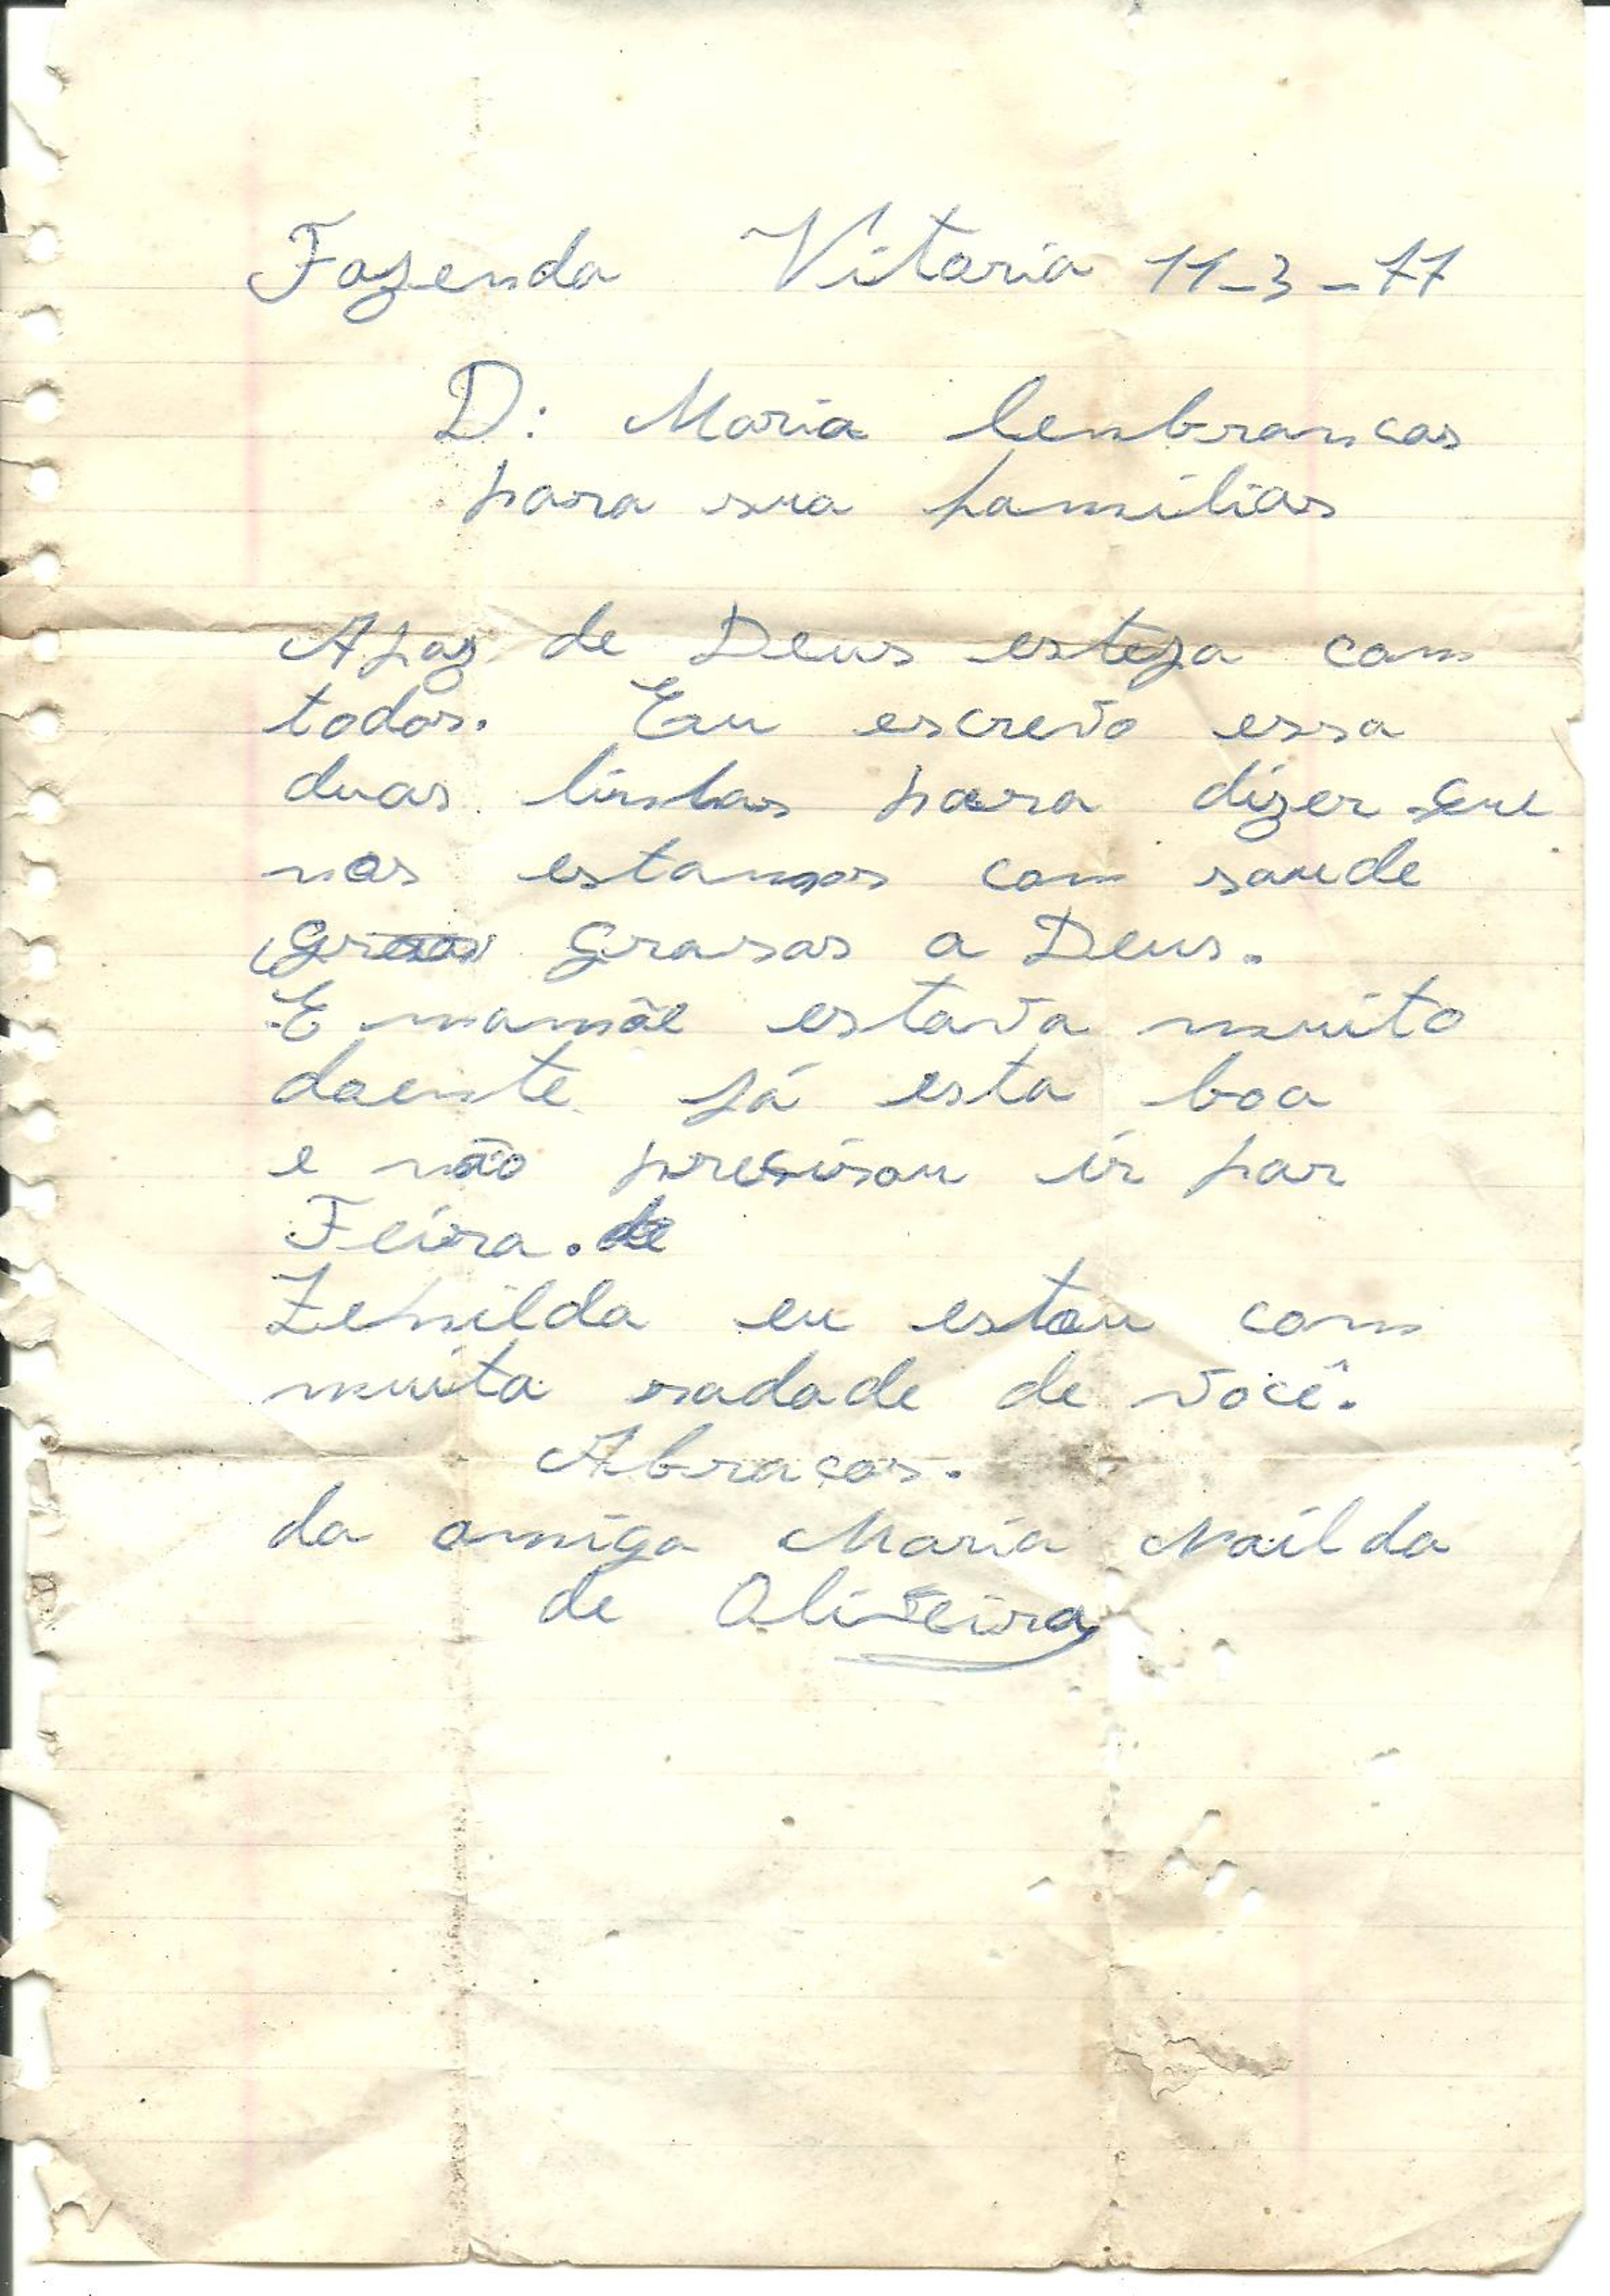 Fazenda Vitoria 11-3-77
D: Maria lenbrancas
para sua familias
Apaz de Deus esteja com
todos. Eu escrevo essa
duas linhas para dizer que
nos estamos com saude
grasas a Deus.
E mamãe estava muito
doente já esta boa
e não precisou ir par
Feira.
Zenilda eu estou com
muita sadade de você.
Abracos.
da amiga Maria Nailda
de Oliveira